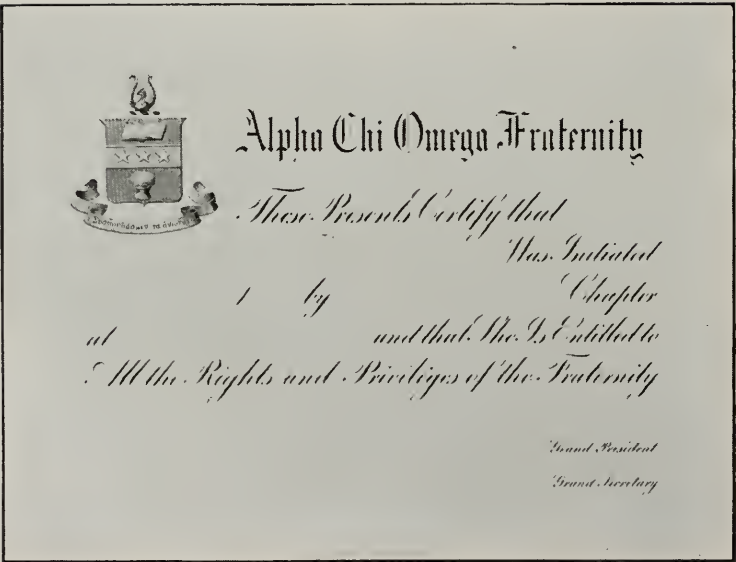 Alpha Chi Omega Fraternity
These Presents Certify that
Was Initiated
1 by Chapter
at and that She Is Entitled to
All the Rights and Priviliges of the Fraternity
Grand President
Grand Secretary